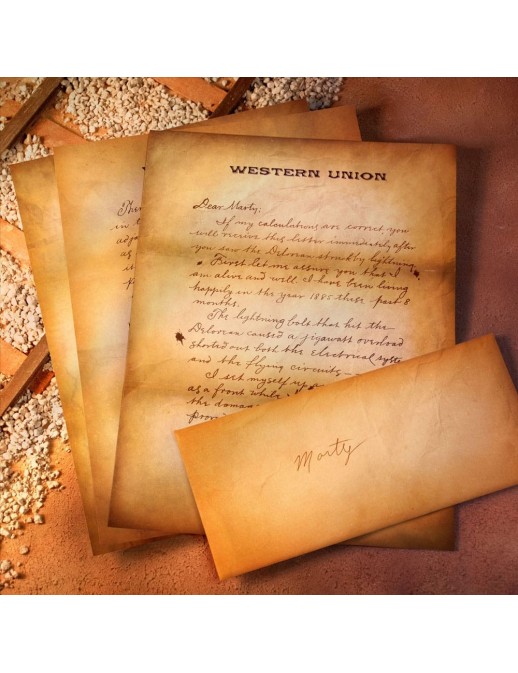 WESTERN UNION
Dear Marty;
If my calculations are correct you
will receive this letter immediately after
you saw the Delorean struck by lightning.
First let me assure you that I
am alive and well. I have been living
happily in the year 1885 these past 8
months.
The lightning bolt that hit the
Delorean caused a jigawatt overload
shorted out both the electrical syste
and the flying circuits
I set myself up
as a front while
the doma
pro
Ther
in t
adja
as
it
p
Marty